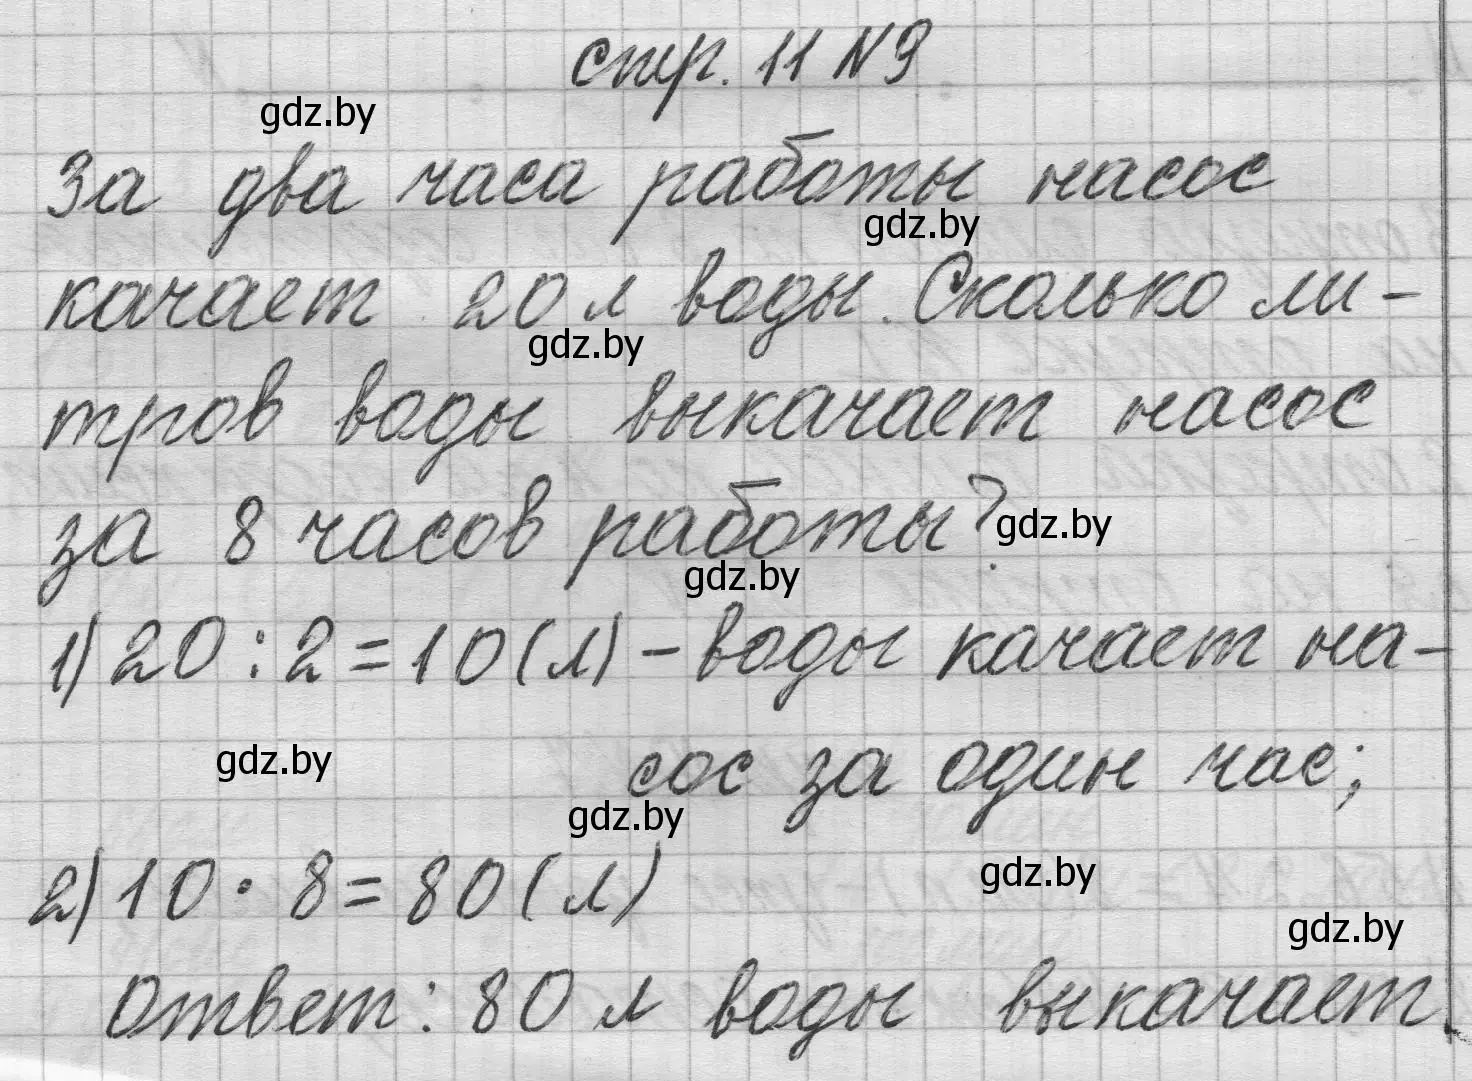 стр. 11 №9
gdz.by
За два часа работы насос
gdz.by
качает 20 л воды. Сколько ли-
gdz.by
тров воды выкачает насос
за 8 часов работы?
gdz.by
gdz.by
1) 20 : 2 = 10 (л) - воды качает на-
gdz.by
сос за один час;
gdz.by
gdz.by
2) 10 · 8 = 80 (л)
gdz.by
Ответ: 80 л воды выкачает.